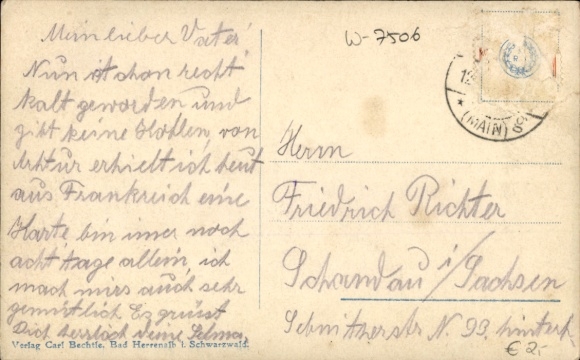 Mein lieber Vater
Nun ist schon recht
kalt geworden und
gibt keine Kohlen, von
Arthur erhielt ich heut
aus Frankreich eine
Karte bin imer noch
acht tage allein, ich
mach mirs auch sehr
gemütlich Es grüsst
Dich herzlich deine Selma,
Verlag Carl Bechtle, Bad Herrenalb i. Schwarzwald.
W-7506
(MAIN)
Herrn
Friedrich Richter
Schandau i/Sachsen
Sebnitzerstr N. 93. hinterh
€ 2-